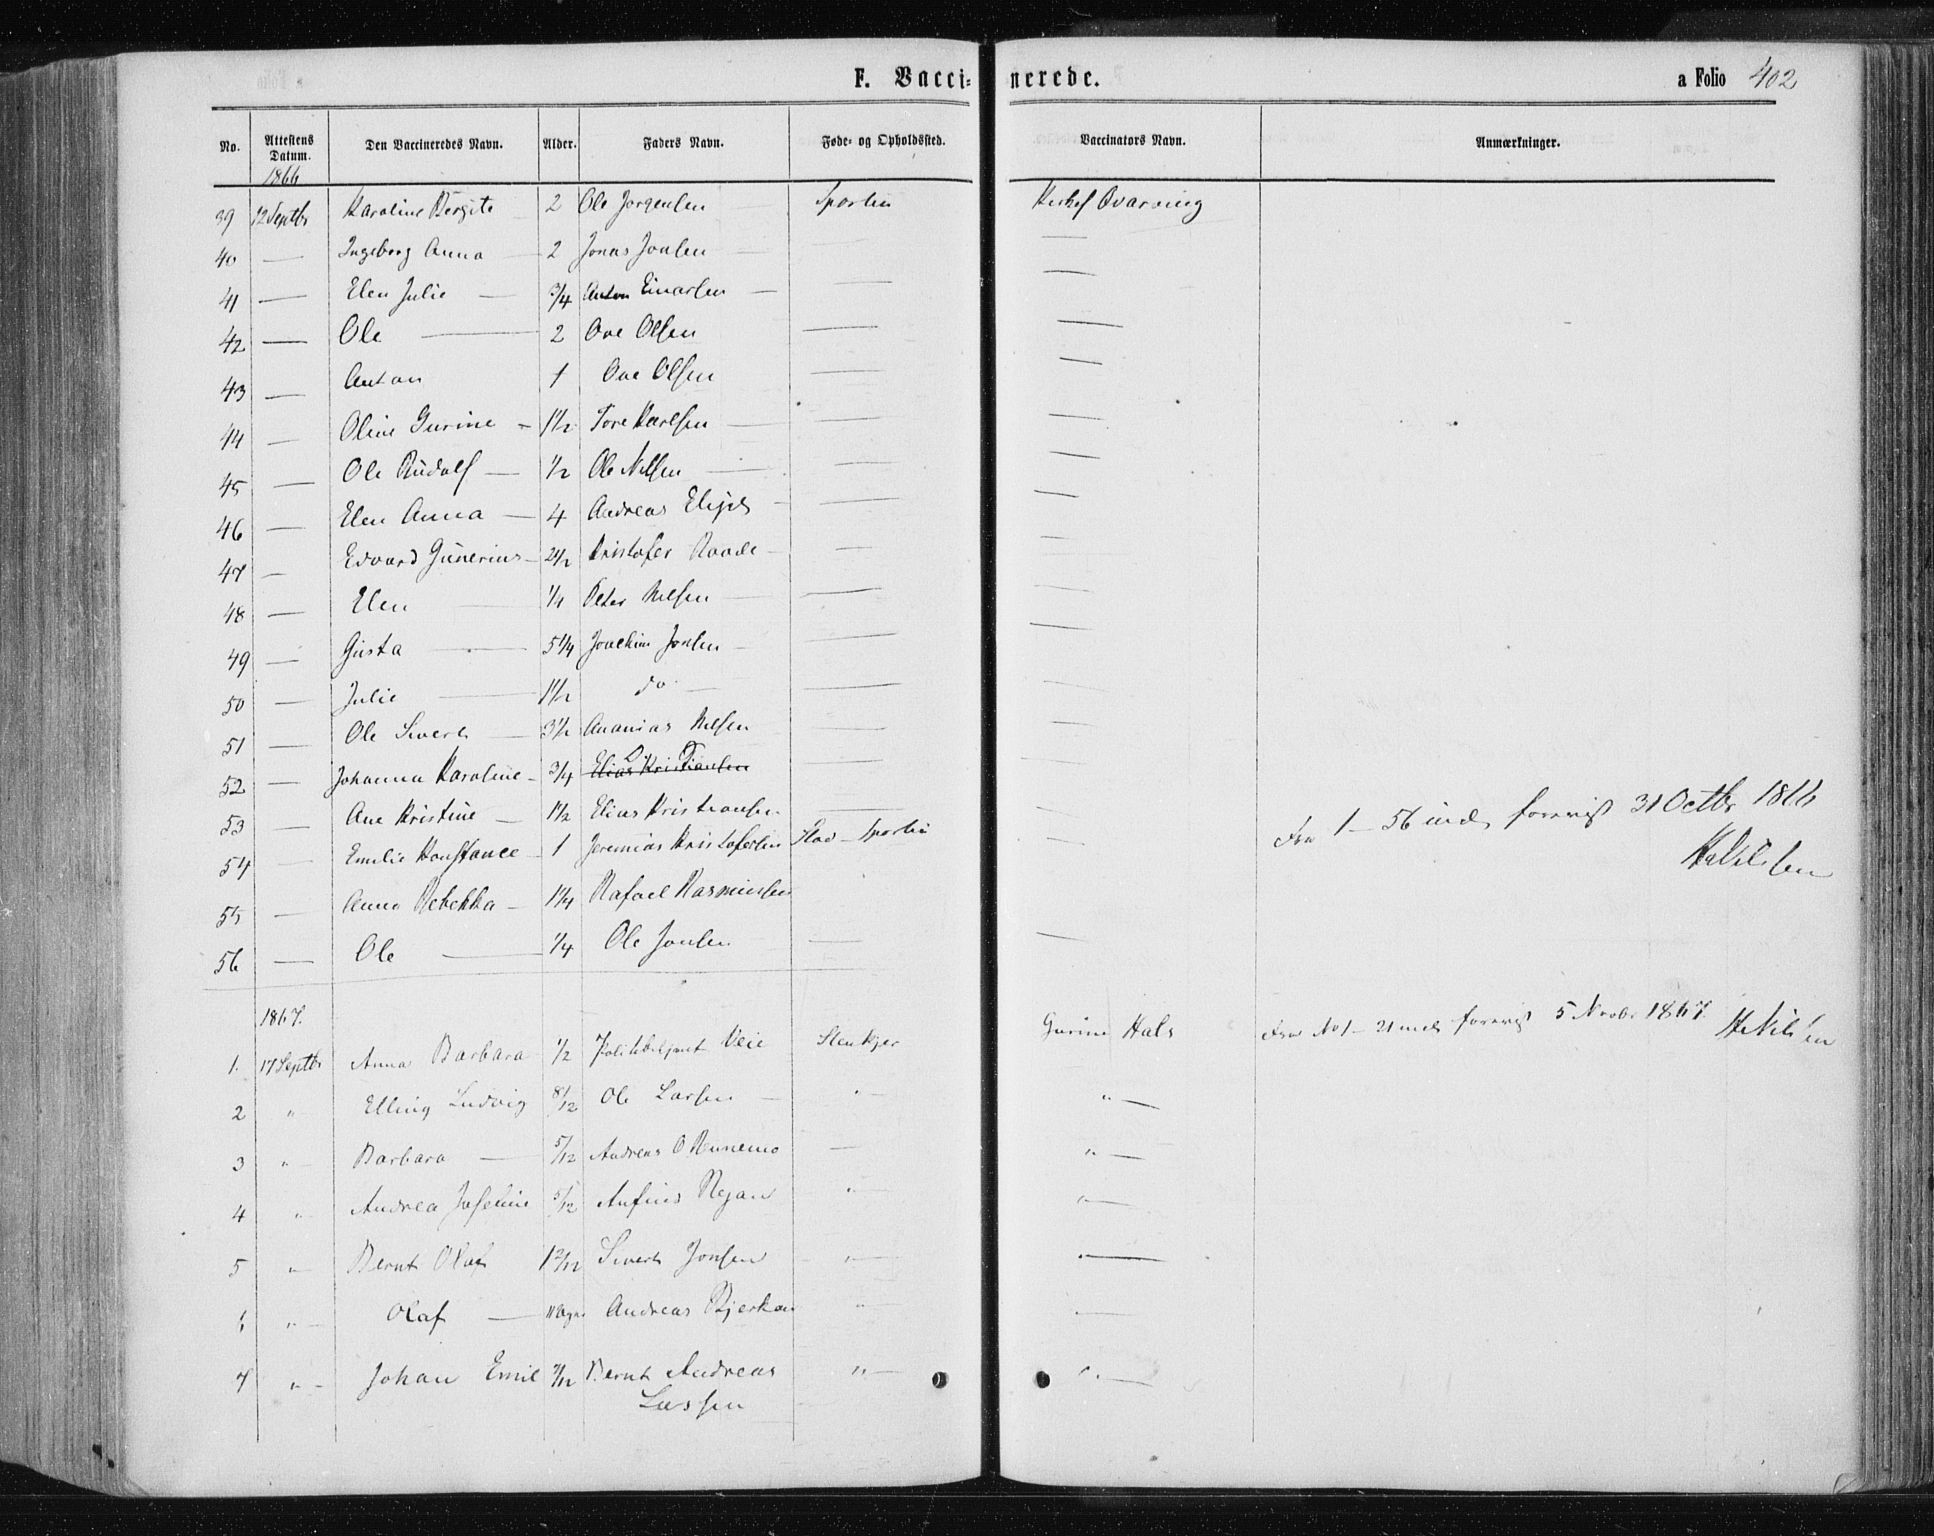 F. Vacci- nerede. a Folio 402
No. Attestens Datum. Den Vaccineredes Navn. Alder. Faders Navn. Føde- og Opholdssted. Vaccinators Navn. Anmærkninger.
1866
39 12 Septbr Karoline Bergite 2 Ole Jørgensen
40 — Ingeborg Anna — 2 Jonas Jonsen —
41 — Elen Julie — 3/4 Anton Einarsen — — —
42 — Ole — 2 Ove Olsen — —
43 — Anton 1 Ove Olsen — —
44 — Oline Gurine - 1 1/2 Tore Karlsen — —
45 — Ole Rudolf — 1/2 Ole Nilsen — — —
46 — Elen Anna — 4 Andreas — —
47 — Edvard Gunerius - 2 1/2 Kristofer Raade - — —
48 — Elen — 1/4 Peter Nilsen — — —
49 — Gusta — 5 1/4 Joachim Jonsen — — —
50 — Julie — 1 1/2 do — — —
51 — Ole Sivert — 3 1/2 Ananias Nilsen — —
52 — Johanna Karoline - 3/4 Elias Kristiansen — —
53 — Ane Kristine — 1 1/2 Elias Kristiansen — —
54 — Emilie Konstance - 1 Jeremias Kristofersen — Fra 1 - 56 incl. forevist 31 Octbr 1866
55 — Anna Rebekka — 1 1/4 Rafael Rasmussen
56 — Ole — 1/4 Ole Jonsen — —
1867.
1. 17 Septbr Anna Barbara 1/2 Politibetjent Veie Stenkjer Gurine Hals Fra No 1 - 21 incl. forevist 5 Novbr 1867. H Nilsen
2 " Elling Ludvig 8/12 Ole Larsen — " — " —
3 " — Barbara — 5/12 Andreas O Rennemo — " —
4 " Andrea Josefine 5/12 Anfins " — " —
5 " Bernt Olaf Sivert Jonsen " — " —
6 " — Olaf — Andreas Bjerkan " — " —
7 " — Johan Emil Bernt Andreas " — " —
Lassen